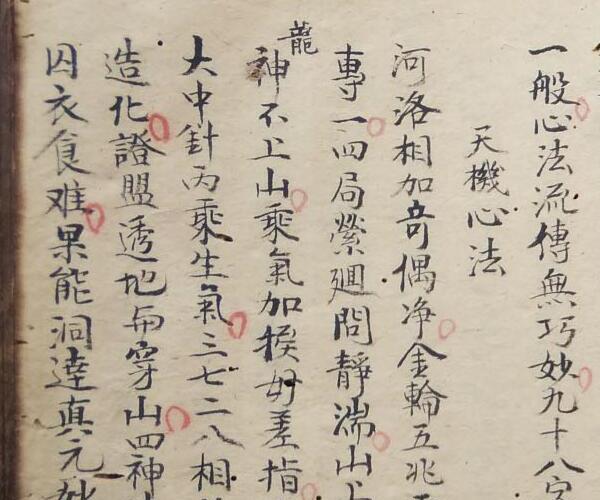 一般心法流傳無巧妙九十八字
天機心法
河洛相加奇偶净金輪五兆
專一四局縈迴問靜湍山上
龍神不上山乘氣加揆毋差指
大中針丙乘生氣三七二八相
造化證盟透地与穿山四神
囚衣食难果能洞達真元妙